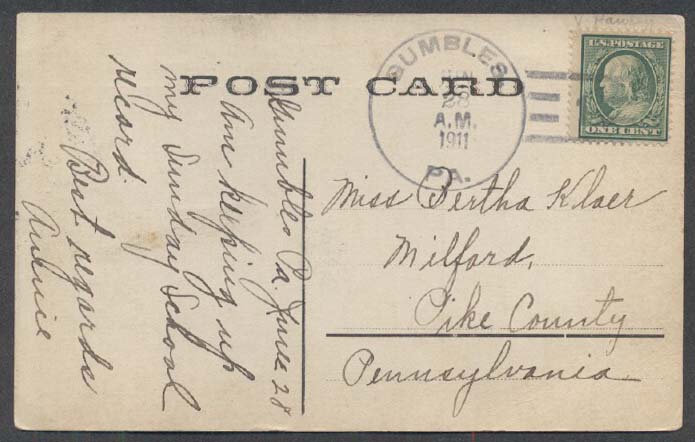 POST CARD
GUMBLES
JUN
28
A.M.
1911
PA.
U.S. POSTAGE
ONE CENT
Gumbles Pa. June 28
Am keeping up
my Sunday School
record.
Best regards
Miss Bertha Klaer
Milford,
Pike County
Pennsylvania